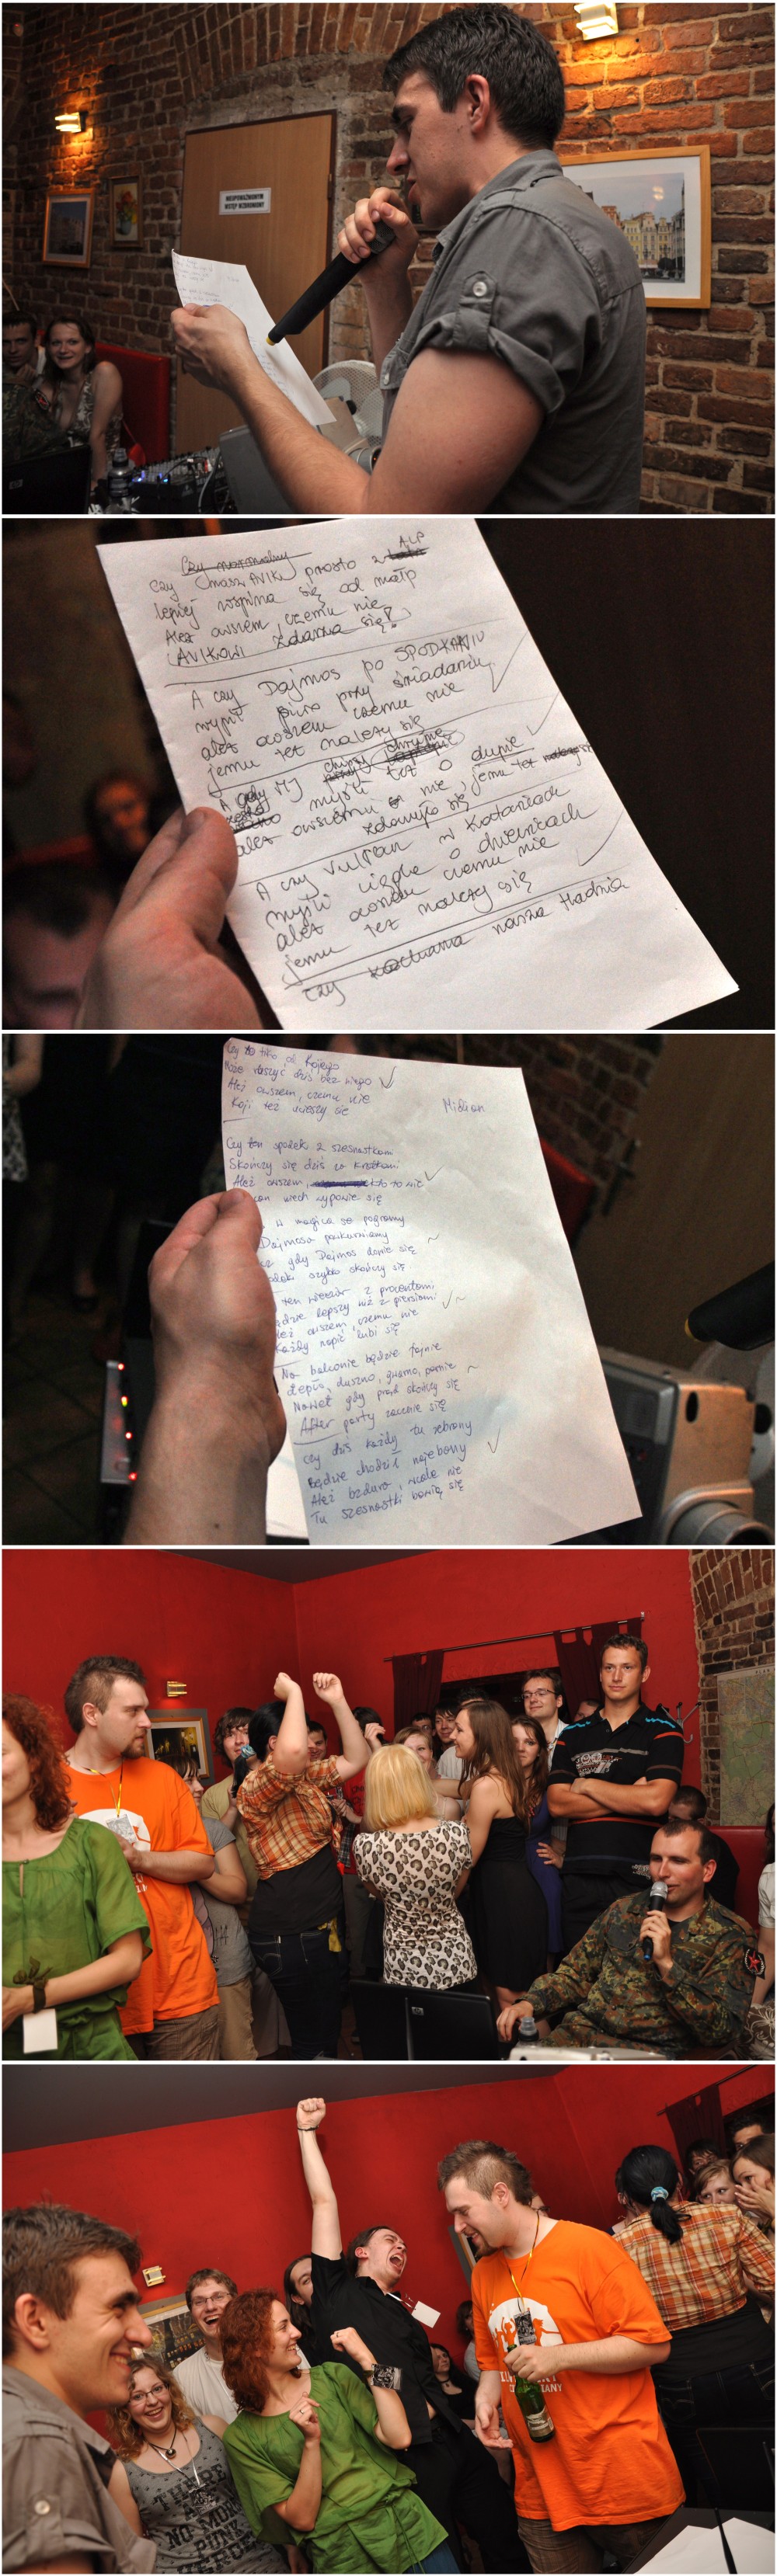 NIEUPOWAŻNIONYM
WSTĘP WZBRONIONY
Czy normalny
ALP
Czy masz AVIKI prosto z
lepiej wspina się od małp
Ależ owszem, czemu nie
AVIKOWI zdarza się!
A czy Dajmos po SPODKANIU
wypił piwo przy śniadaniu
ależ owszem czemu nie
jemu też należy się
A gdy MJ
myśli też o dupie
ależ owszemu nie, jemu też
zdarzyło się
A czy Vulpian w Katowicach
myśli ciągle o dziewicach
ależ owszem czemu nie
jemu też należy się
czy kochana nasza Hadnia
Czy to tiko od Kojego
Może ruszyć dziś bez niego
Ależ owszem, czemu nie
Koji też ucieszy się
Midian
Czy ten spodek z szesnastkami
Skończy się dziś za kratkami
Ależ owszem, kto to wie
niech wypowie się
w magica se pogramy
Dajmosa powkurwiamy
gdy Dajmos dorwie się
szybko skończy się
ten wieczór z procentami
będzie lepszy niż z piersiami
Ależ owszem, czemu nie
Każdy napić lubi się
Na balkonie będzie fajnie
ciepło, duszno, gwarno, parnie
Nawet gdy prąd skończy się
After party zacznie się
Czy dziś każdy tu zebrany
Będzie chodził najebany
Ależ bzdura, wcale nie
Tu szesnastki bawią się
hp
THERE
ARE
NO MORE
PUNK